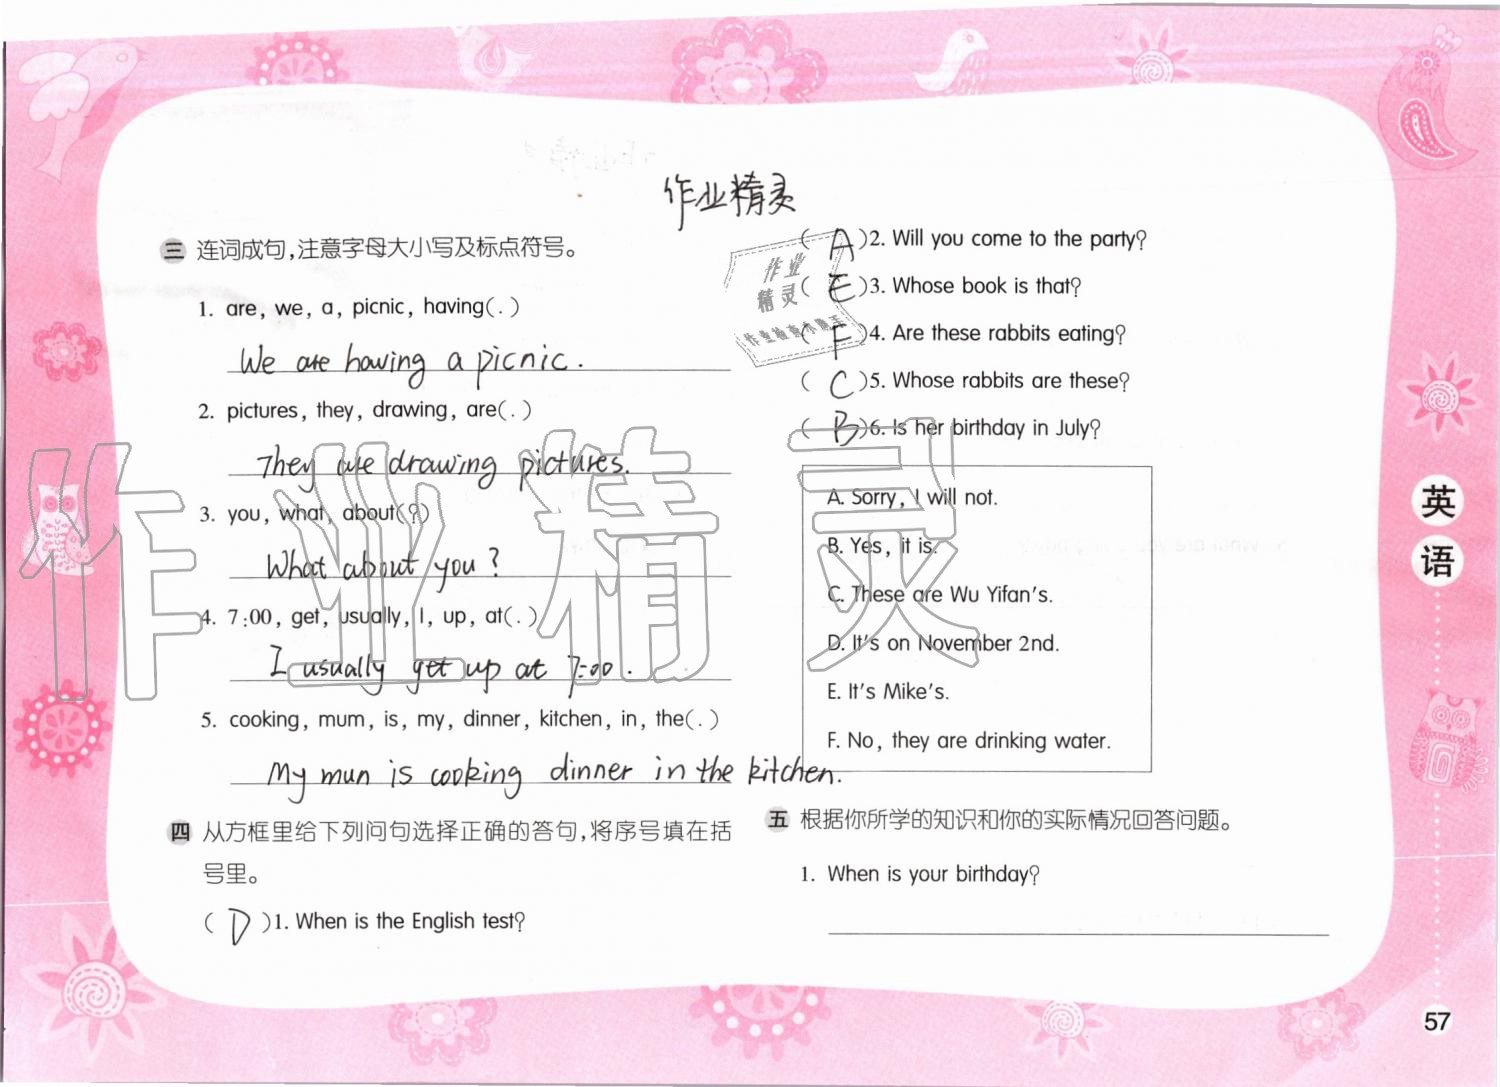 作业精灵
三 连词成句,注意字母大小写及标点符号。
1. are, we, a, picnic, having(.)
We are having a picnic.
2. pictures, they, drawing, are(.)
They are drawing pictures.
3. you, what, about(?)
What about you?
4. 7:00, get, usually, I, up, at(.)
I usually get up at 7:00.
5. cooking, mum, is, my, dinner, kitchen, in, the(.)
My mun is cooking dinner in the kitchen.
四 从方框里给下列问句选择正确的答句,将序号填在括
号里。
( D )1. When is the English test?
( A )2. Will you come to the party?
( E )3. Whose book is that?
( F )4. Are these rabbits eating?
( C )5. Whose rabbits are these?
( B )6. Is her birthday in July?
A. Sorry, I will not.
B. Yes, it is.
C. These are Wu Yifan's.
D. It's on November 2nd.
E. It's Mike's.
F. No, they are drinking water.
五 根据你所学的知识和你的实际情况回答问题。
1. When is your birthday?
英
语
57
作业
精灵
作业检查小助手
作业精灵